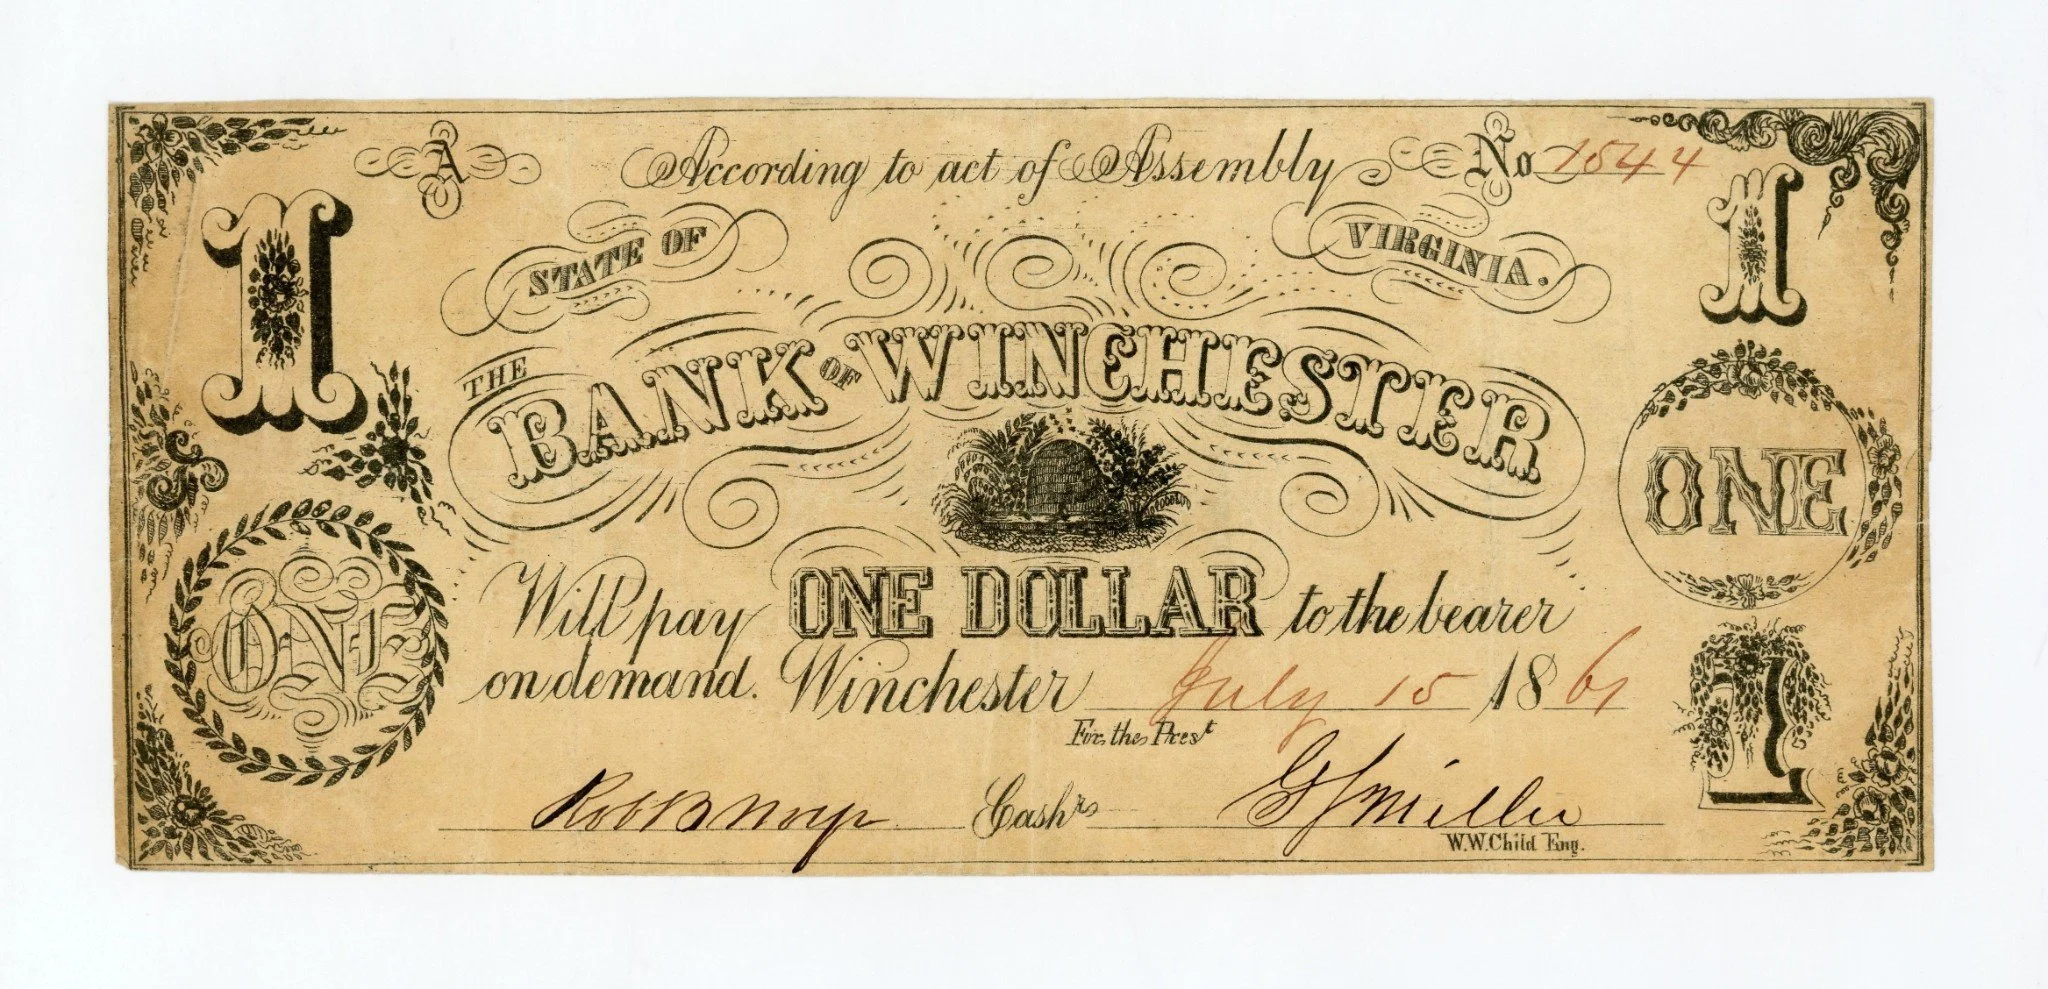 A According to act of Assembly No 1544
1 STATE OF VIRGINIA. 1
THE BANK OF WINCHESTER
ONE
ONE
Will pay ONE DOLLAR to the bearer
on demand. Winchester July 15 1861
For the Prest
1
Cashr
W.W. Child Eng.